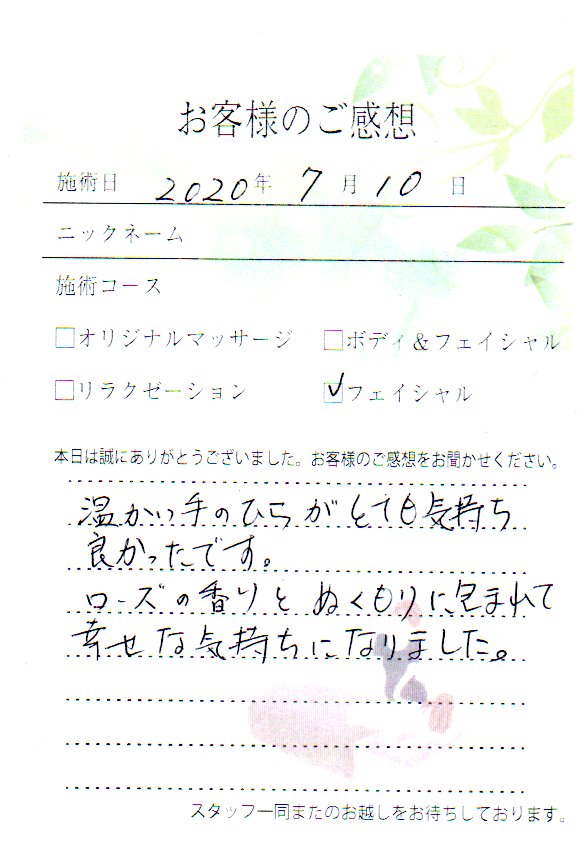 お客様のご感想
施術日 2020年 7月 10日
ニックネーム
施術コース
□オリジナルマッサージ □ボディ&フェイシャル
□リラクゼーション ☑フェイシャル
本日は誠にありがとうございました。お客様のご感想をお聞かせください。
温かい手のひらがとても気持ち
良かったです。
ローズの香りとぬくもりに包まれて
幸せな気持ちになりました。
スタッフ一同またのお越しをお待ちしております。